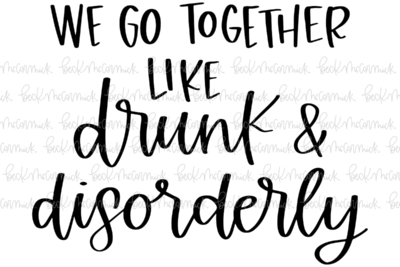 WE GO TOGETHER
LIKE
drunk &
disorderly